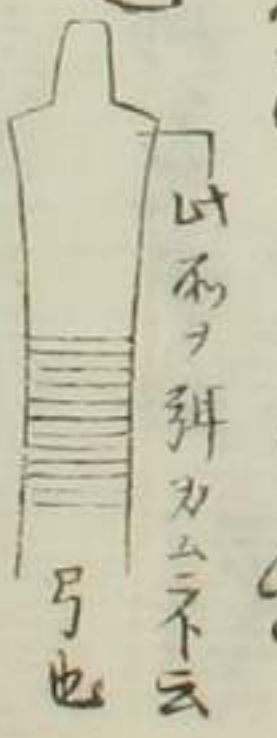 此所ヲ弭カムラト云
弓也